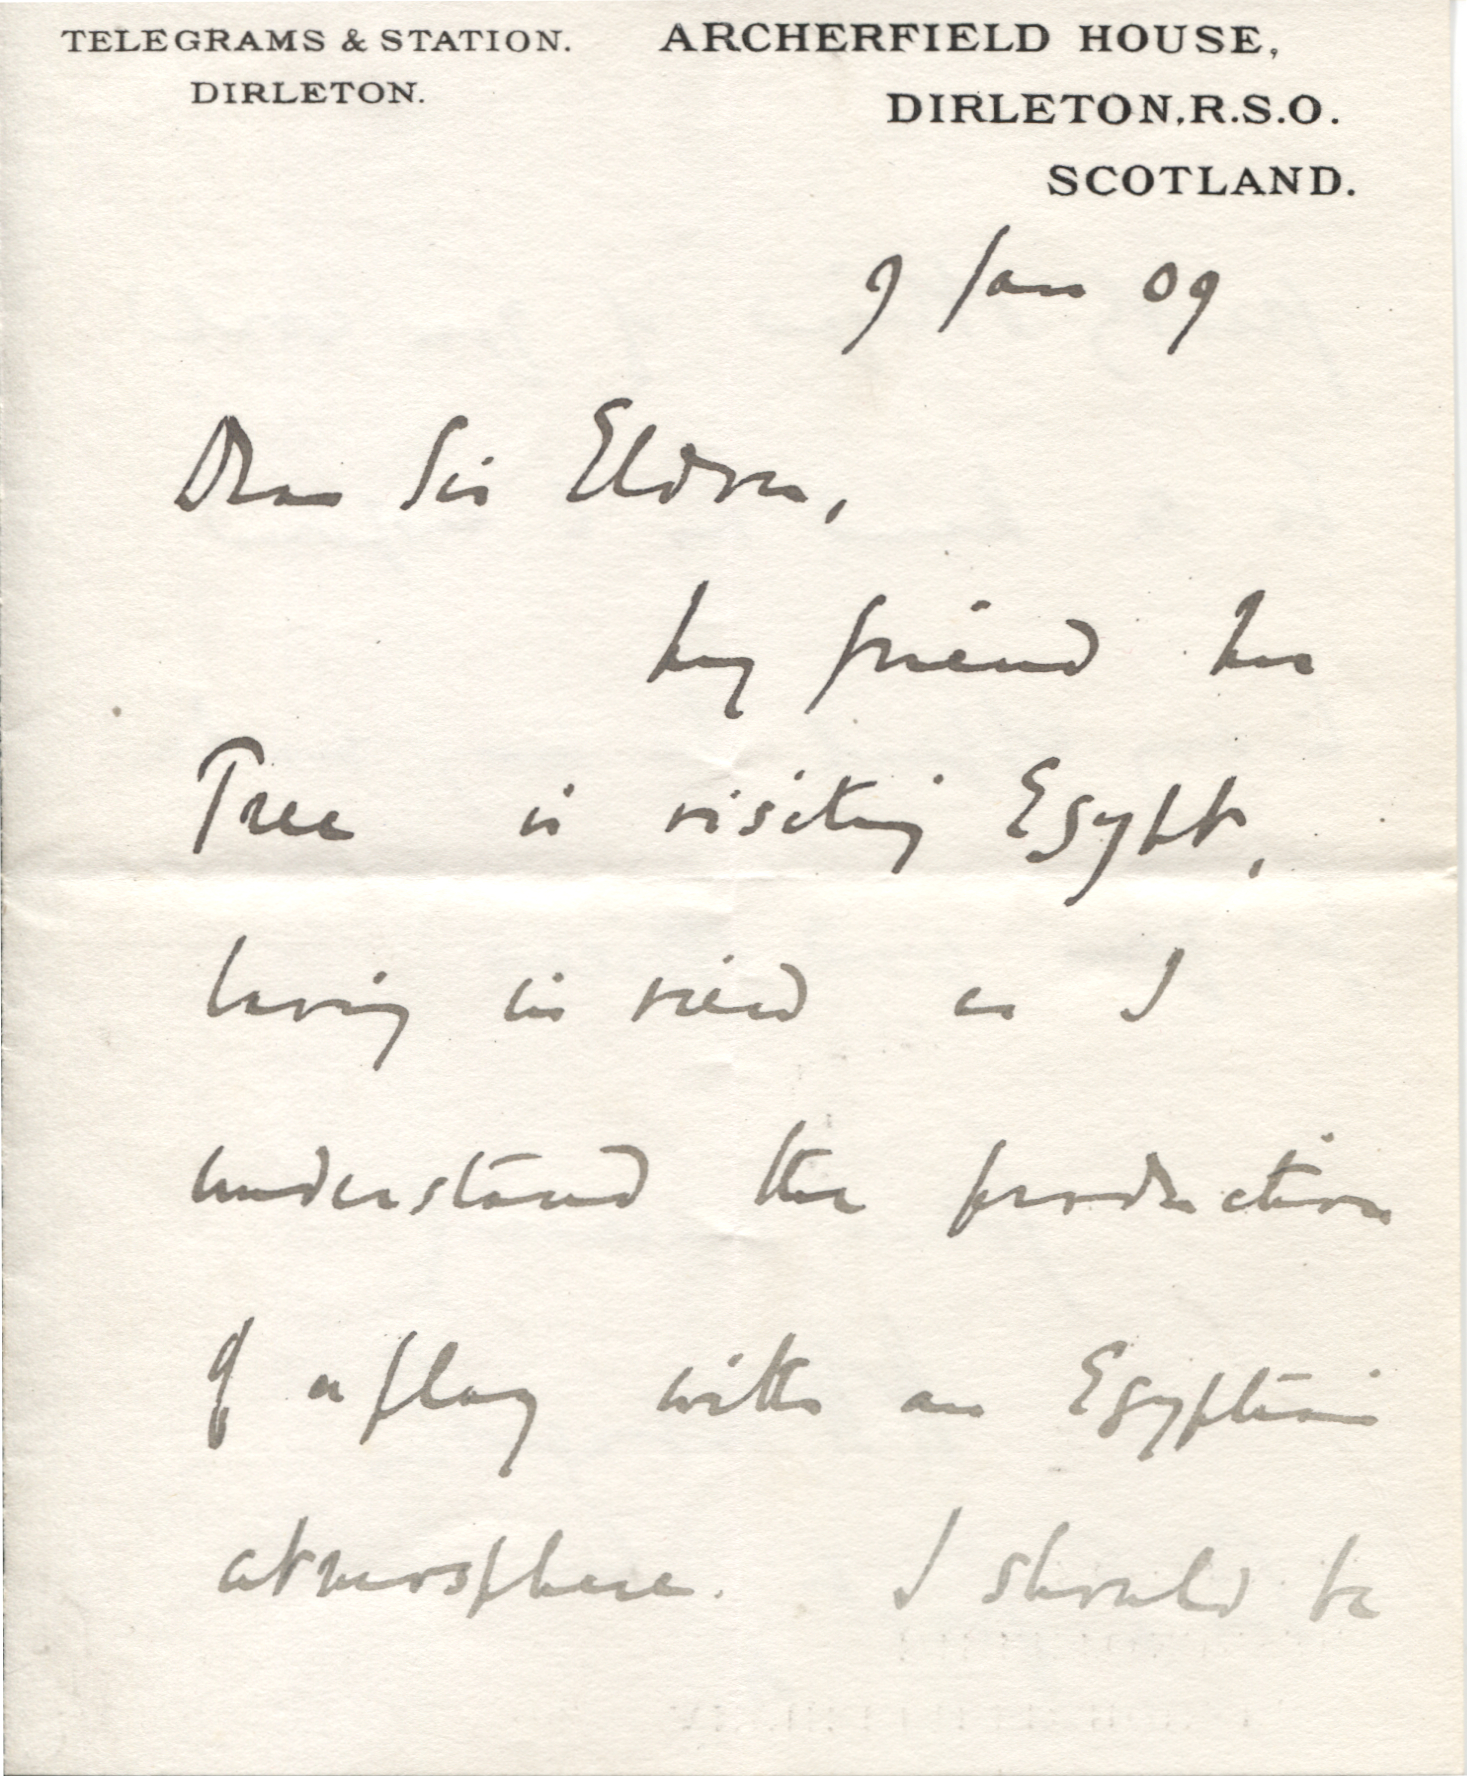 TELEGRAMS & STATION.
DIRLETON.
ARCHERFIELD HOUSE,
DIRLETON. R.S.O.
SCOTLAND.
9 Jan 09
Dear Sir Eldon,
My friend Mr
Tree is visiting Egypt,
having in view as I
understand the production
of a play with an Egyptian
atmosphere. I should be